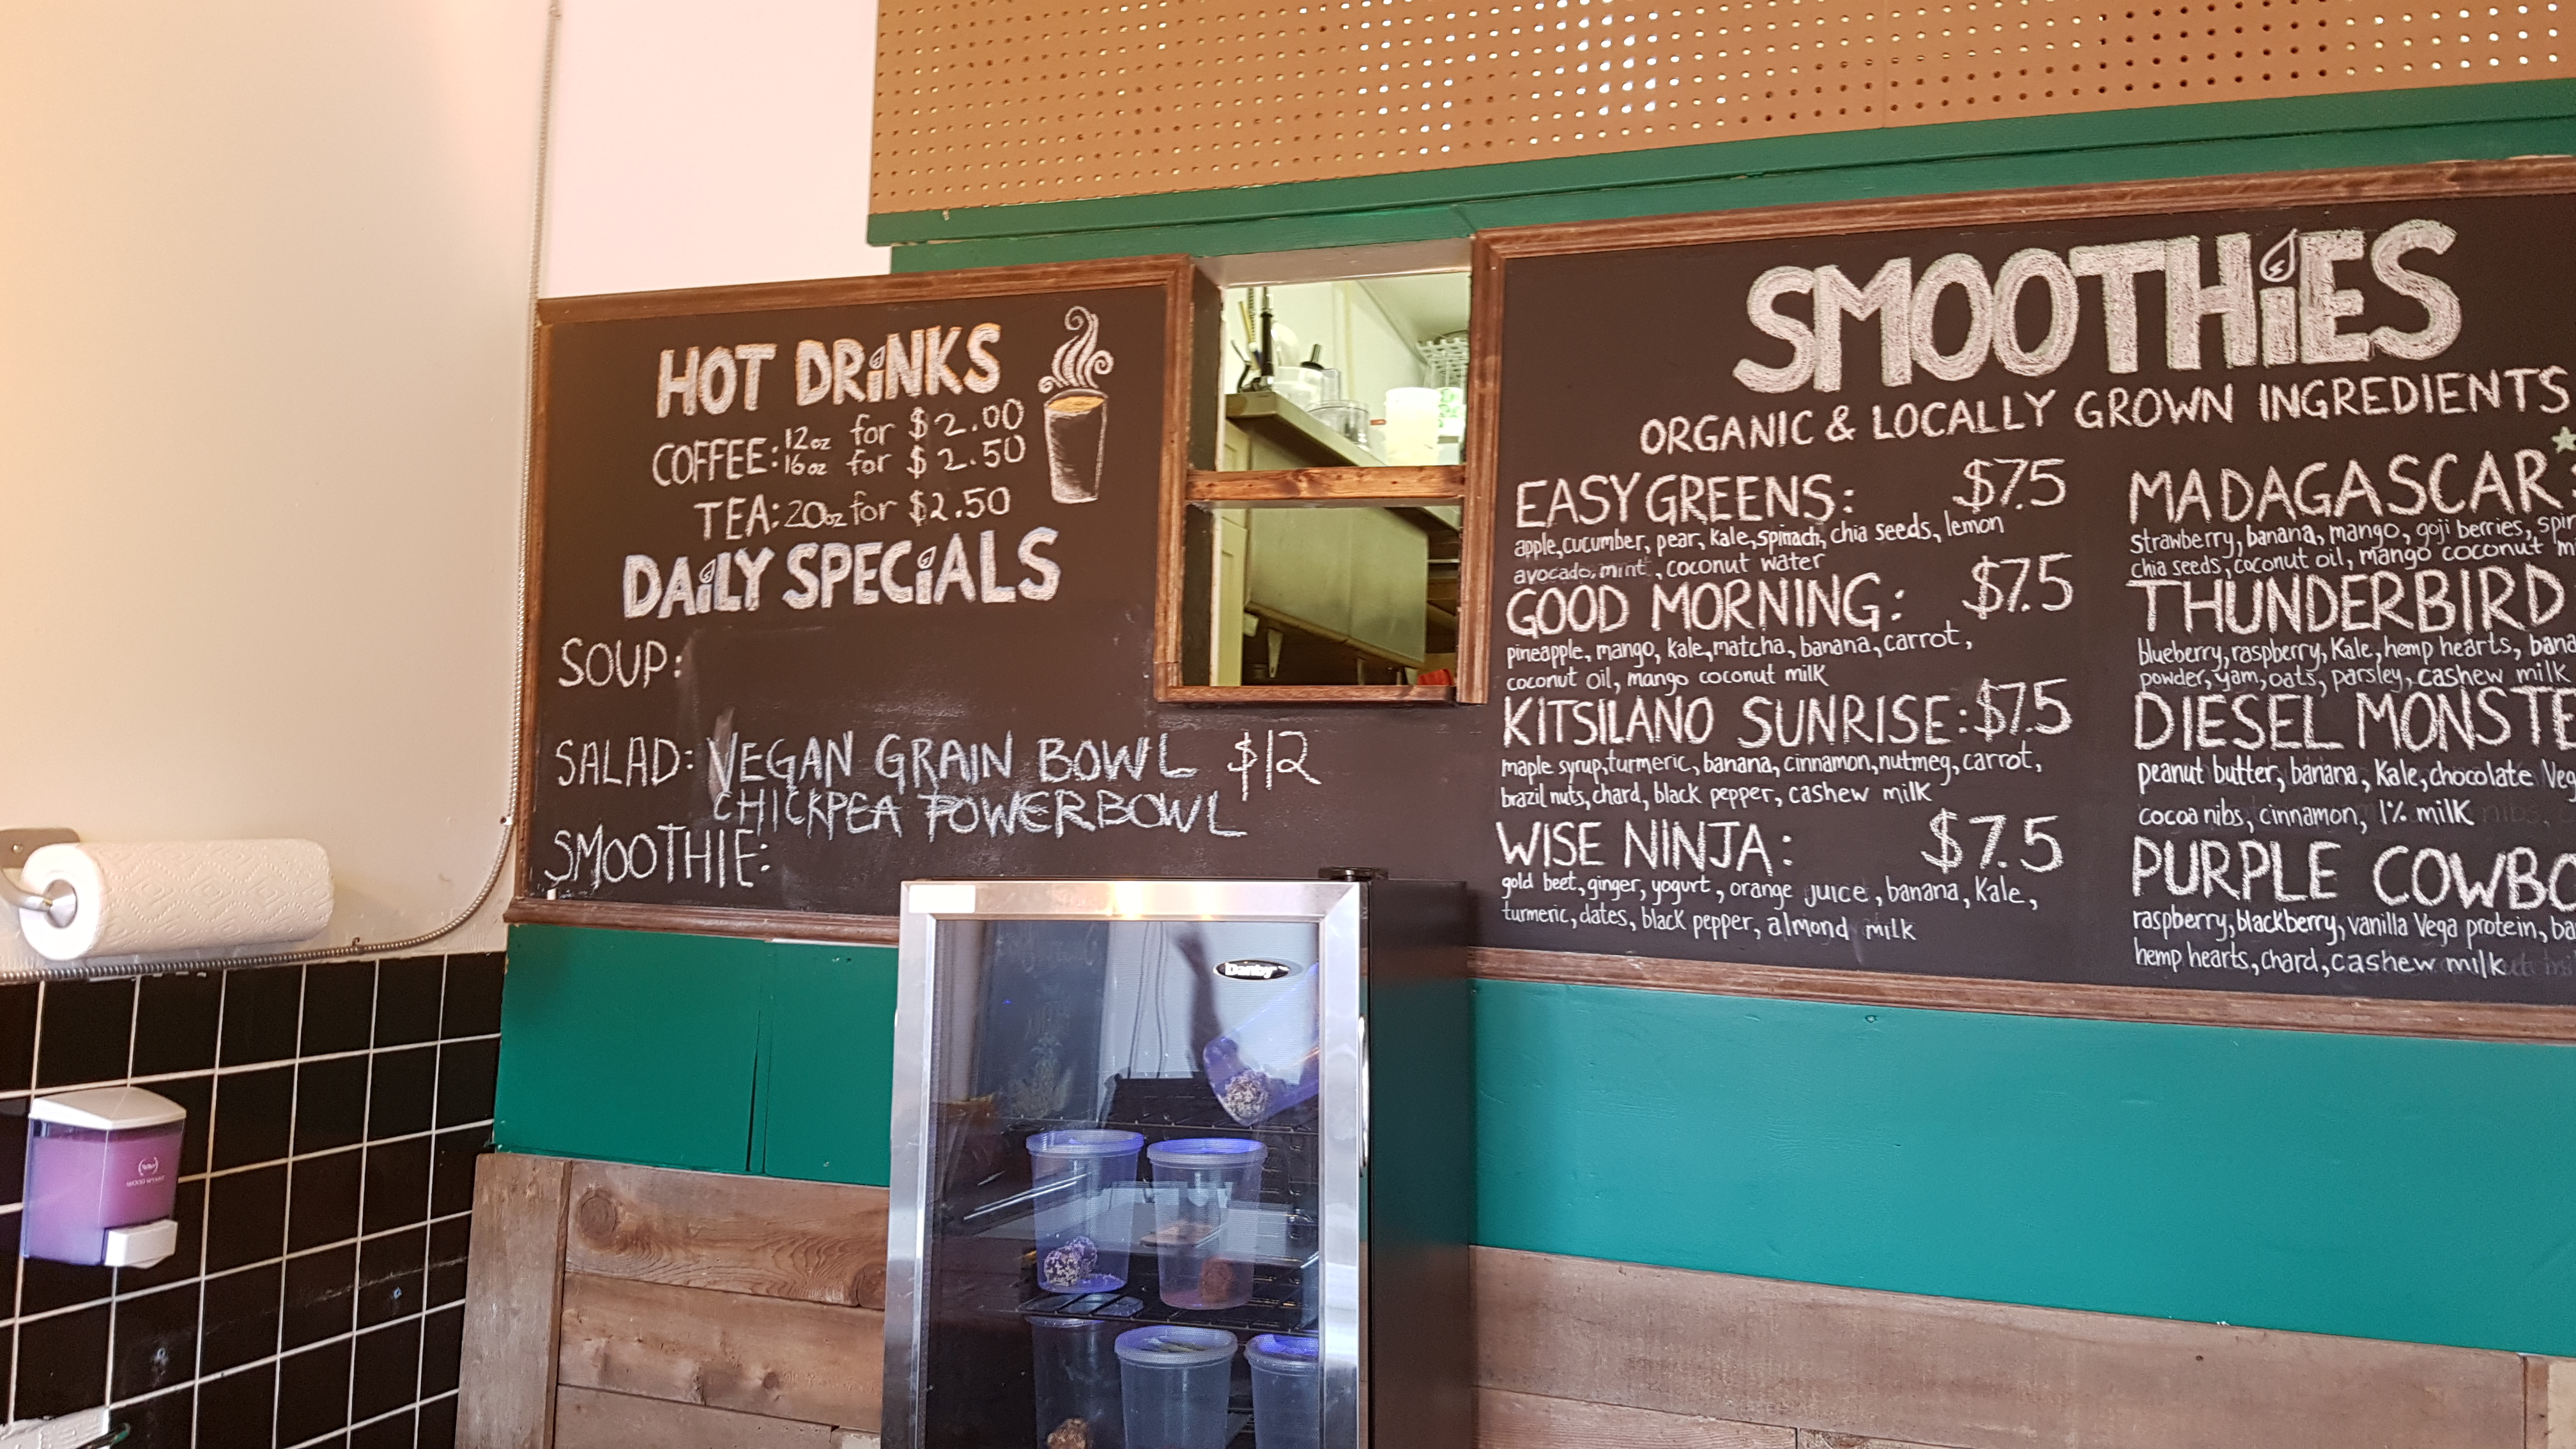 HOT DRiNKS
COFFEE: 12oz for $2.00
16oz for $2.50
TEA: 20oz for $2.50
DAiLY SPECiALS
SOUP:
SALAD: VEGAN GRAIN BOWL $12
CHICKPEA POWERBOWL
SMOOTHIE:
SMOOTHiES
ORGANIC & LOCALLY GROWN INGREDIENTS
EASY GREENS: $7.5
apple, cucumber, pear, kale, spinach, chia seeds, lemon
avocado, mint, coconut water
GOOD MORNING: $7.5
pineapple, mango, kale, matcha, banana, carrot,
coconut oil, mango coconut milk
KITSILANO SUNRISE: $7.5
maple syrup, turmeric, banana, cinnamon, nutmeg, carrot,
brazil nuts, chard, black pepper, cashew milk
WISE NINJA: $7.5
gold beet, ginger, yogurt, orange juice, banana, kale,
turmeric, dates, black pepper, almond milk
MADAGASCAR
strawberry, banana, mango, goji berries,
chia seeds, coconut oil, mango coconut
THUNDERBIRD
blueberry, raspberry, kale, hemp hearts,
powder, yam, oats, parsley, cashew milk
DIESEL
peanut butter, banana, kale, chocolate
cocoa nibs, cinnamon, 1% milk
PURPLE
raspberry, blackberry, vanilla Vega protein,
hemp hearts, chard, cashew milk
Danby